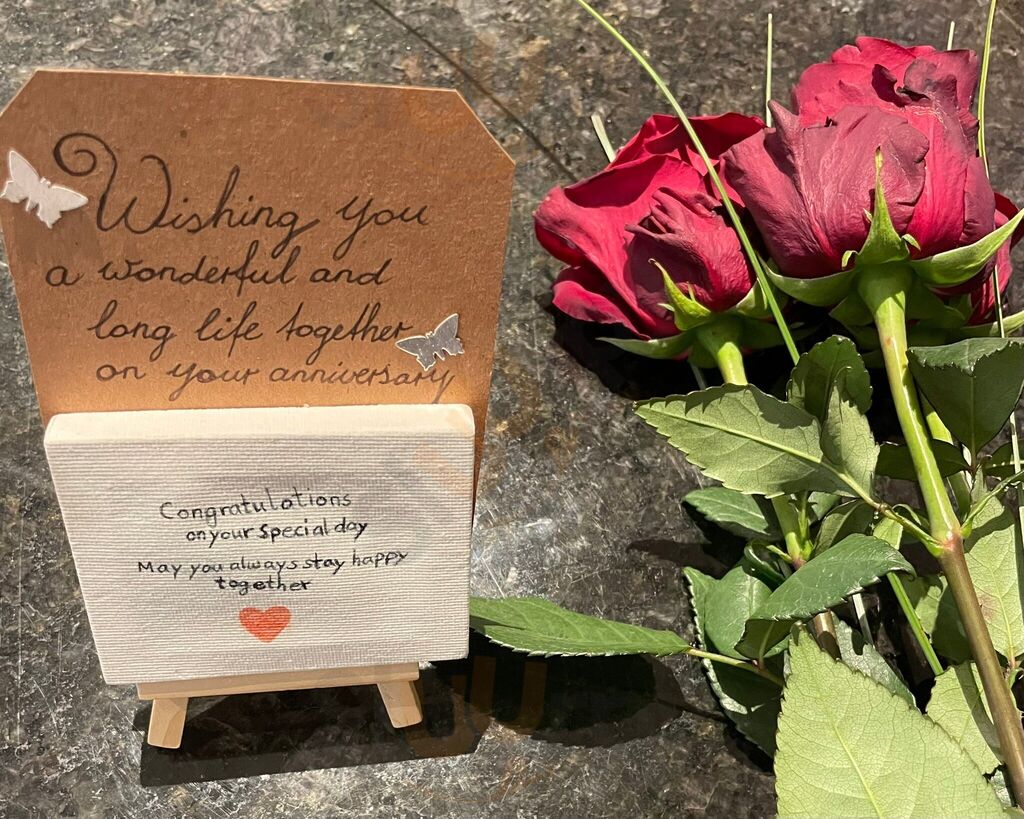 Wishing you
a wonderful and
long life together
on your anniversary
Congratulations
on your special day
May you always stay happy
together